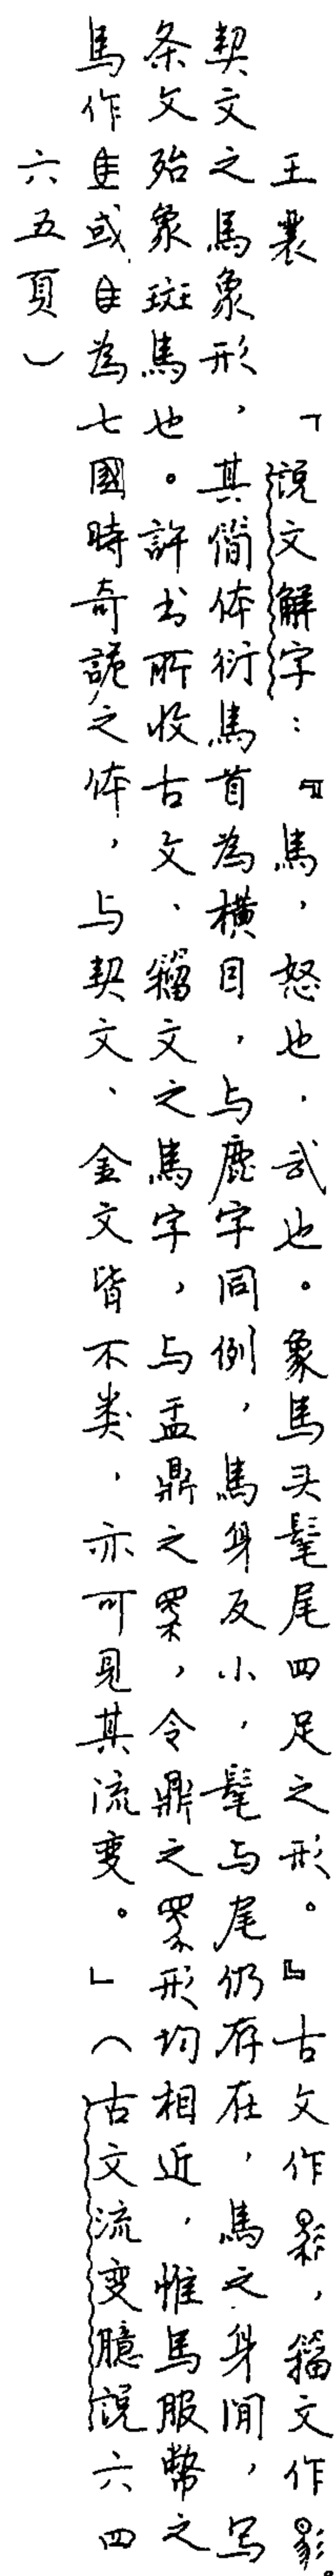 王襄 「说文解字：『馬，怒也，武也。象馬头髦尾四足之形。』古文作，籀文作。
契文之馬象形，其简体衍馬首為横目，与鹿字同例，馬身反小，髦与尾仍存在，馬之身間，写
条文殆象斑馬也。許书所收古文、籀文之馬字，与盂鼎之，令鼎之形均相近，惟馬服幣之
馬作或為七國時奇詭之体，与契文、金文皆不类，亦可見其流变。」（古文流变臆说六四
六五頁）